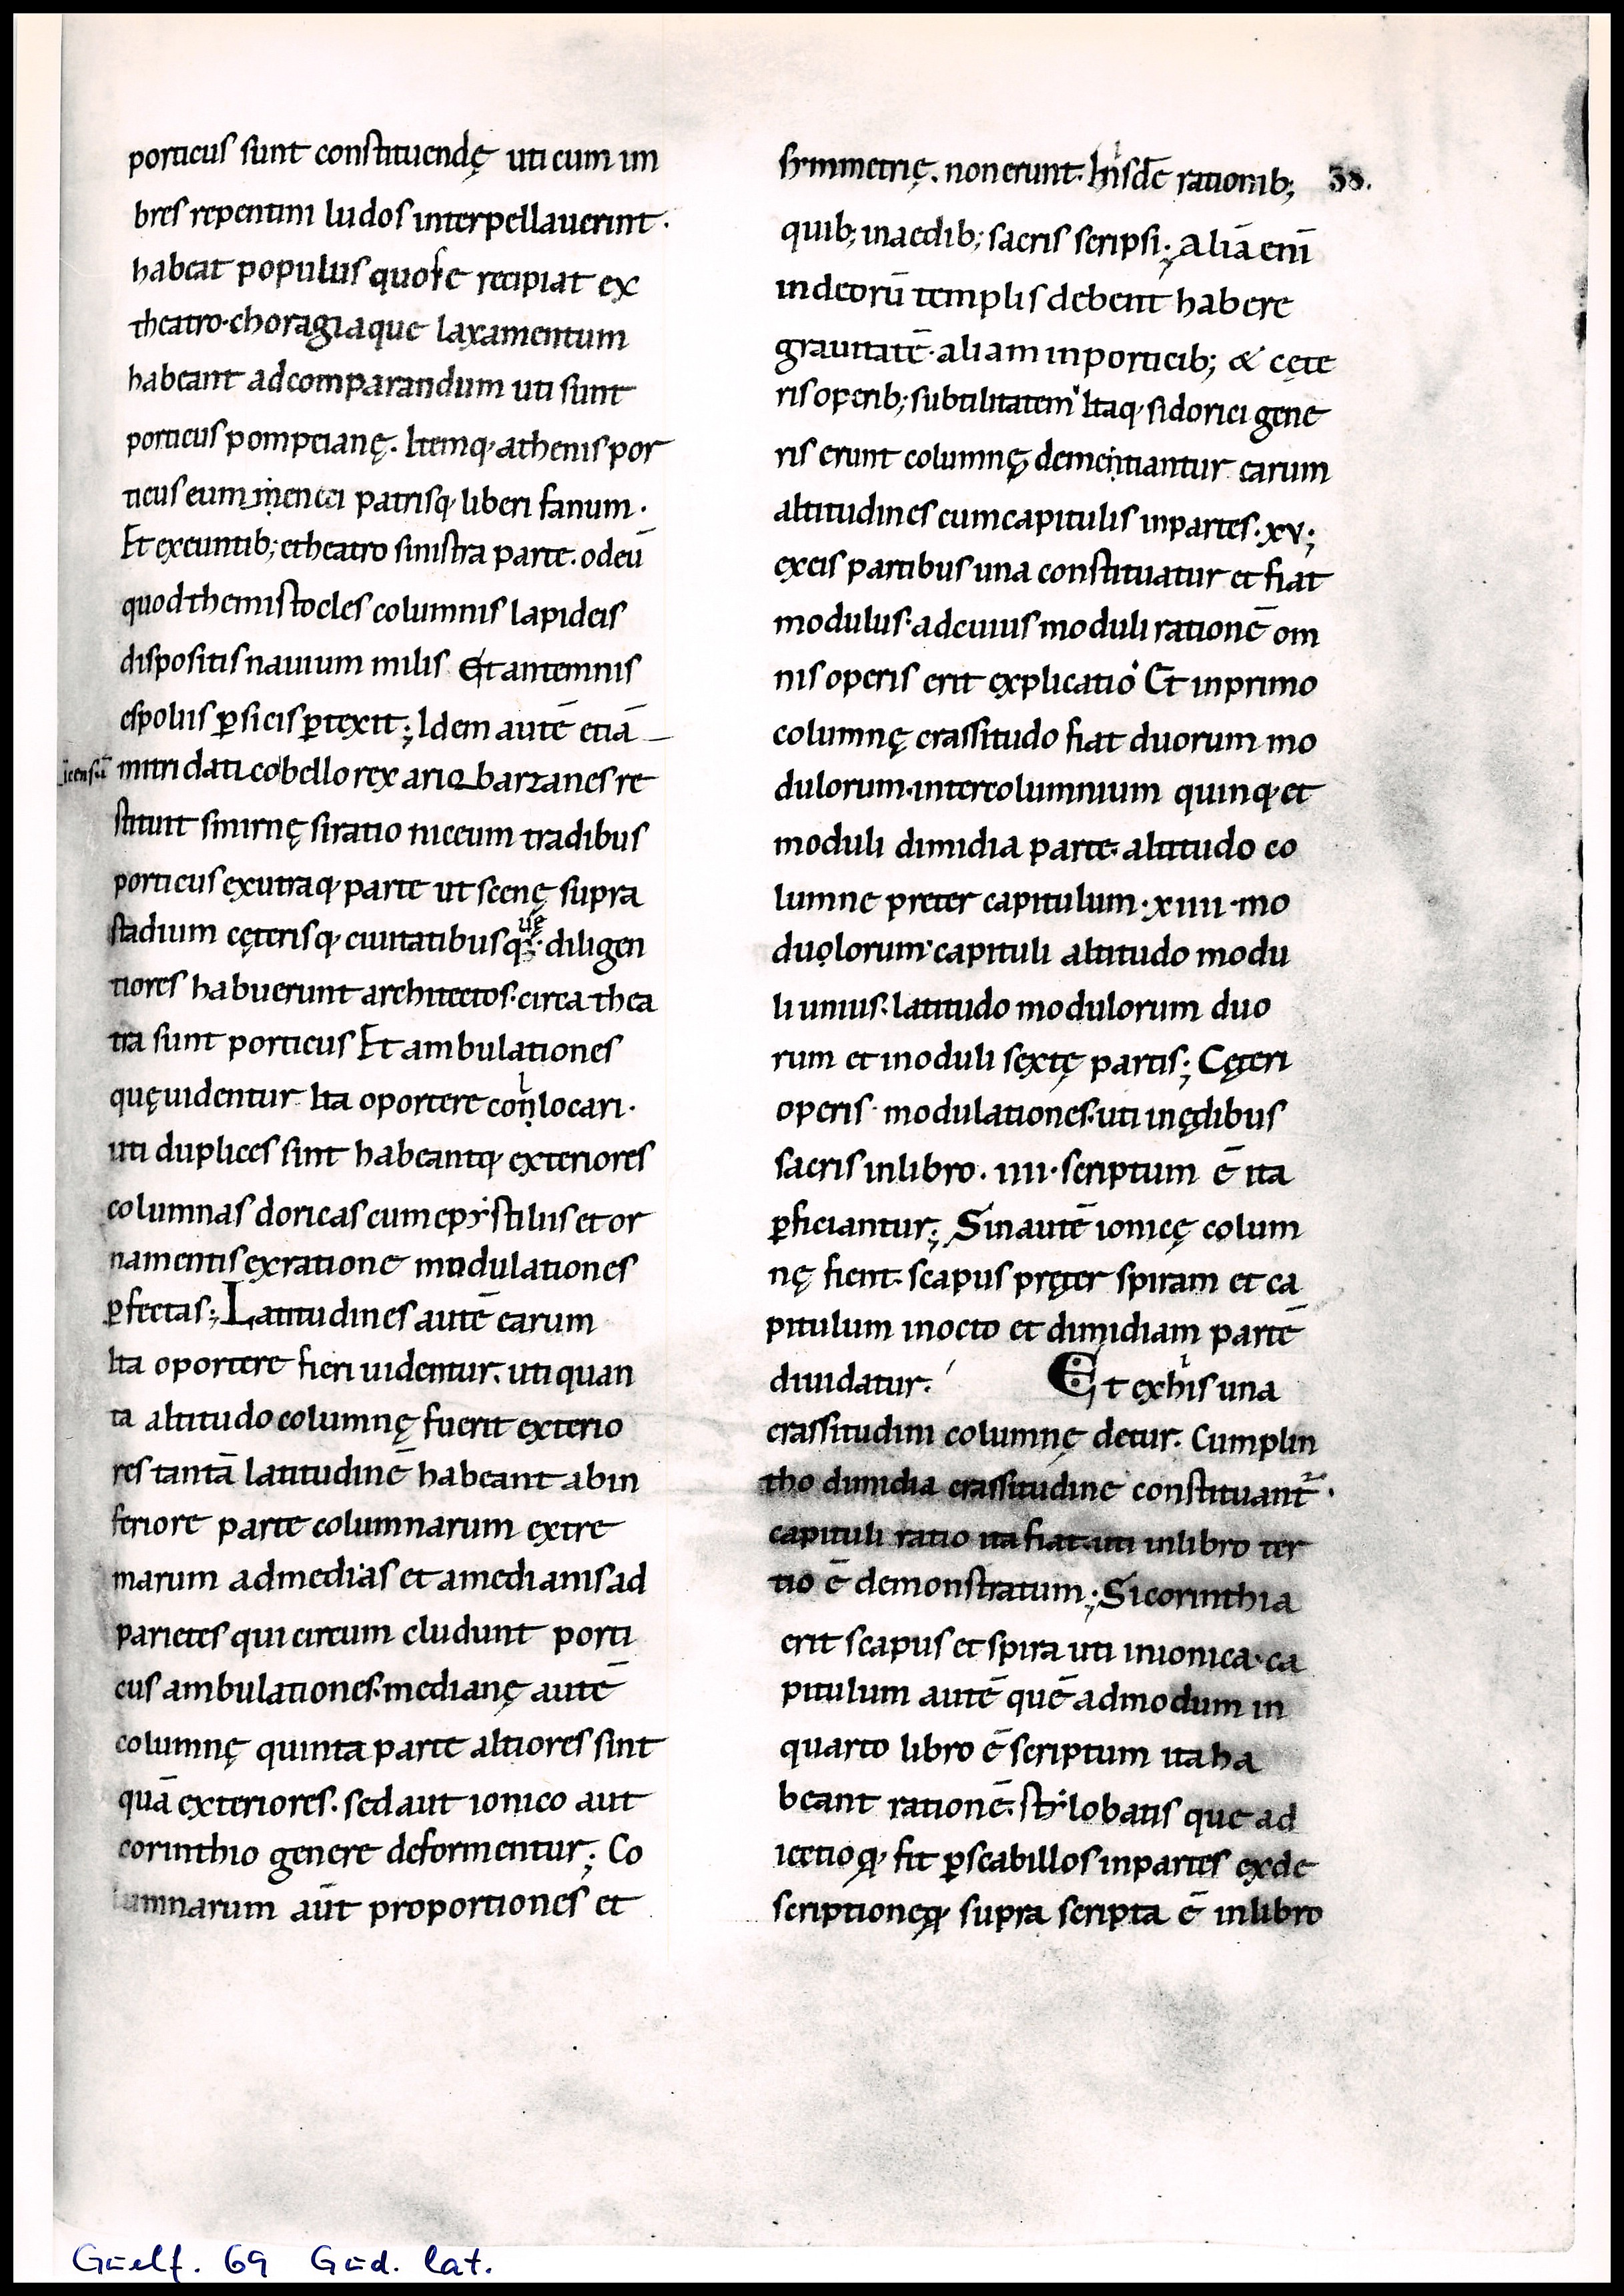 porticus sunt constituendę uti cum im
bres repentini ludos interpellauerint·
habeat populus quo se recipiat ex
theatro·choragiaque laxamentum
habeant ad comparandum uti sunt
porticus pompeianę. Itemq· athenis por
ticus eum menei patrisq· liberi fanum·
Et exeuntib; etheatro sinistra parte. odeū
quod themistocles columnis lapideis
dispositis nauium milis Et antemnis
espoliis ꝑsicis ꝑtexit; Idem autē etiā
mitridatico bello rex ariobarzanes re
stituit smirnę siratio niceum tradibus
porticus exutraq· parte ut scenę supra
stadium cęterisq· ciuitatibus q· diligen
tiores habuerunt architectos·circa thea
tra sunt porticus Et ambulationes
quę uidentur Ita oportere conlocari·
uti duplices sint habeantq· exteriores
columnas doricas cum epystiliis et or
namentis exratione modulationes
ꝑfectas; Latitudines autē earum
Ita oportere fieri uidentur. uti quan
ta altitudo columnę fuerit exterio
res tantā latitudinē habeant abin
feriore parte columnarum extre
marum admedias et amedianis ad
parietes qui circum cludunt porti
cus ambulationes·medianę autē
columnę quinta parte altiores sint
quā exteriores. sed aut ionico aut
corinthio genere deformentur; Co
lumnarum aūt proportiones et
symmetrię. non erunt hisdē rationib; 38.
quib; inaedib; sacris scripsi; aliā enī
indeorū templis debent habere
grauitatē·aliam inporticib; & cęte
ris operib; subtilitatem Itaq· si dorici gene
ris erunt columnę dementiantur earum
altitudines cum capitulis inpartes·xv;
exeis partibus una constituatur et fiat
modulus·adcuius moduli rationē om
nis operis erit explicatio Et inprimo
columnę crassitudo fiat duorum mo
dulorum·intercolumnium quinq· et
moduli dimidia parte·altitudo co
lumne preter capitulum·xiiii·mo
duolorum·capituli altitudo modu
li unius·latitudo modulorum duo
rum et moduli sextę partis; Cęteri
operis modulationes·uti inędibus
sacris inlibro·iiii·scriptum ē ita
ꝑficiantur; Sin autē ionicę colum
nę fient·scapus pręter spiram et ca
pitulum inocto et dimidiam partē
diuidatur. Et exhis una
crassitudini columnę detur. Cumplin
tho dimidia crassitudine constituant·
capituli ratio ita fiat·uti inlibro ter
tio ē demonstratum; Si corinthia
erit scapus et spira uti inionica·ca
pitulum autē quē admodum in
quarto libro ē scriptum ita ha
beant rationē·stylobatis que ad
iectioq· fit ꝑscabillos inpartes exde
scriptioneq· supra scripta ē inlibro
Guelf. 69 Gud. lat.